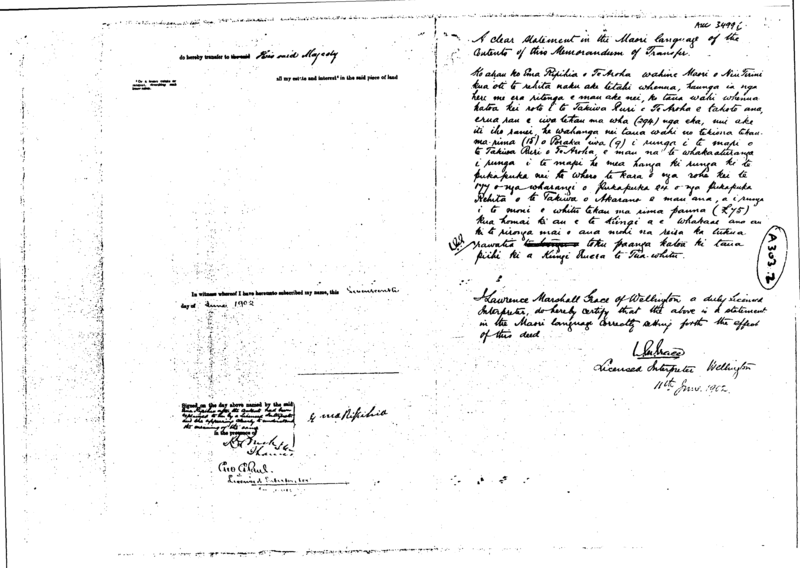 do hereby transfer to the said His said Majesty
all my estate and interest* in the said piece of land
In witness whereof I have hereunto subscribed my name, this
day of June 1902
Signed on the day above named by the said
in the presence of
Ema Ripihia
Geo C Paul
Licensed Interpreter
A clear statement in the Maori language of the
Contents of this Memorandum of Transfer.
Ko ahau ko Ema Ripihia o Te Aroha wahine Maori o Niu Tireni
kua oti te rehita naku ake tetahi whenua, haunga ia nga
here me era ritenga e mau ake nei, ko taua wahi whenua
katoa kei roto i te Takiwa Ruri o Te Aroha e takoto ana,
erua rau e iwa tekau ma wha (294) nga eka, nui ake
iti iho ranei, he wahanga nei taua wahi no tekiona tekau
ma-rima (15) o Poraka iwa (9) i runga i te mapi o
te Takiwa Ruri o Te Aroha, e mau na te whakaaturanga
i runga i te mapi he mea hanga ki runga ki te
pukapuka nei he whero te kara o nga rohe kei te
177 o nga wharangi o Pukapuka o nga pukapuka
Rehita o te Takiwa o Akarana e mau ana, a i runga
i te moni e whitu tekau ma rima pauna (£75)
kua homai ki au e te Kiingi a e whakaae ana au
ki te rironga mai o aua moni na reira ka tukua
rawatia toku paanga katoa ki taua
piihi ki a Kiingi Ruera te Tua-whitu.
I Lawrence Marshall Grace of Wellington a duly Licensed
Interpreter, do hereby certify that the above is a statement
in the Maori language correctly setting forth the effect
of this deed.
Licensed Interpreter Wellington
11th June 1902.
A303.2